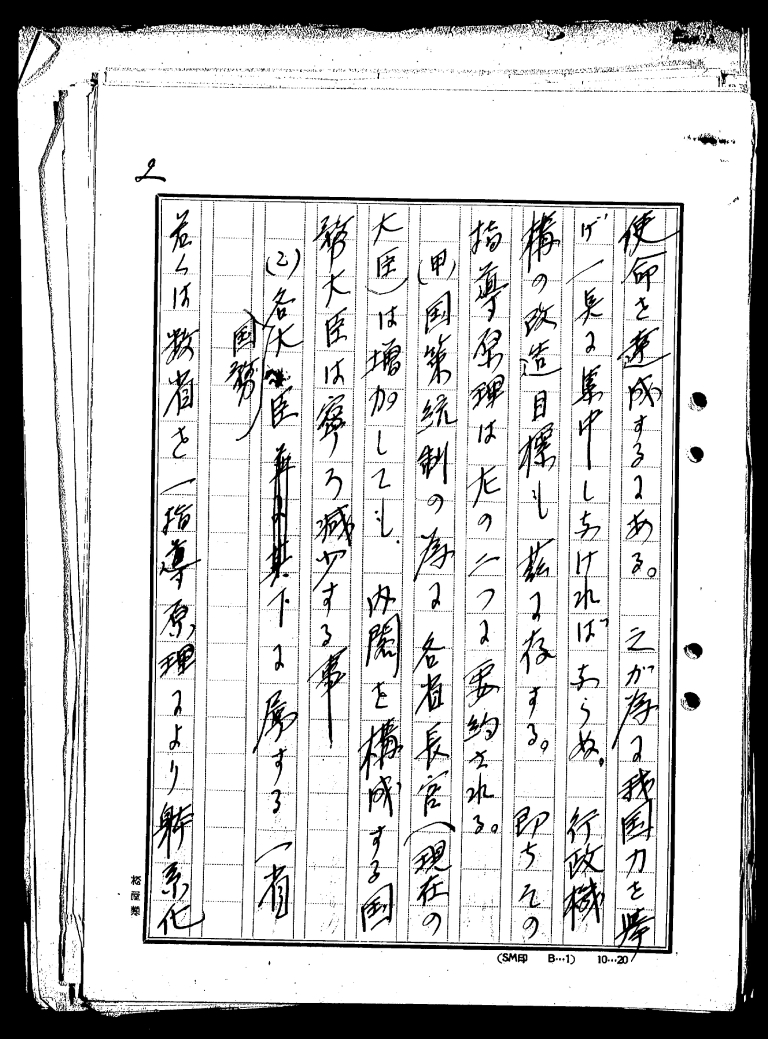 2
使命を達成するにある。之が為に我国力を挙
げ一点に集中しなければならぬ。行政機
構の改造目標も茲に存する。即ちその
指導原理は左の二つに要約される。
(甲)国策統制の為に各省長官(現在の
大臣)は増加しても、内閣を構成する国
務大臣は寧ろ減少する事
(乙)各大臣下に属する一省
(国務)
若くは数省を一指導原理により躰系化
(SM印 B…1) 10…20